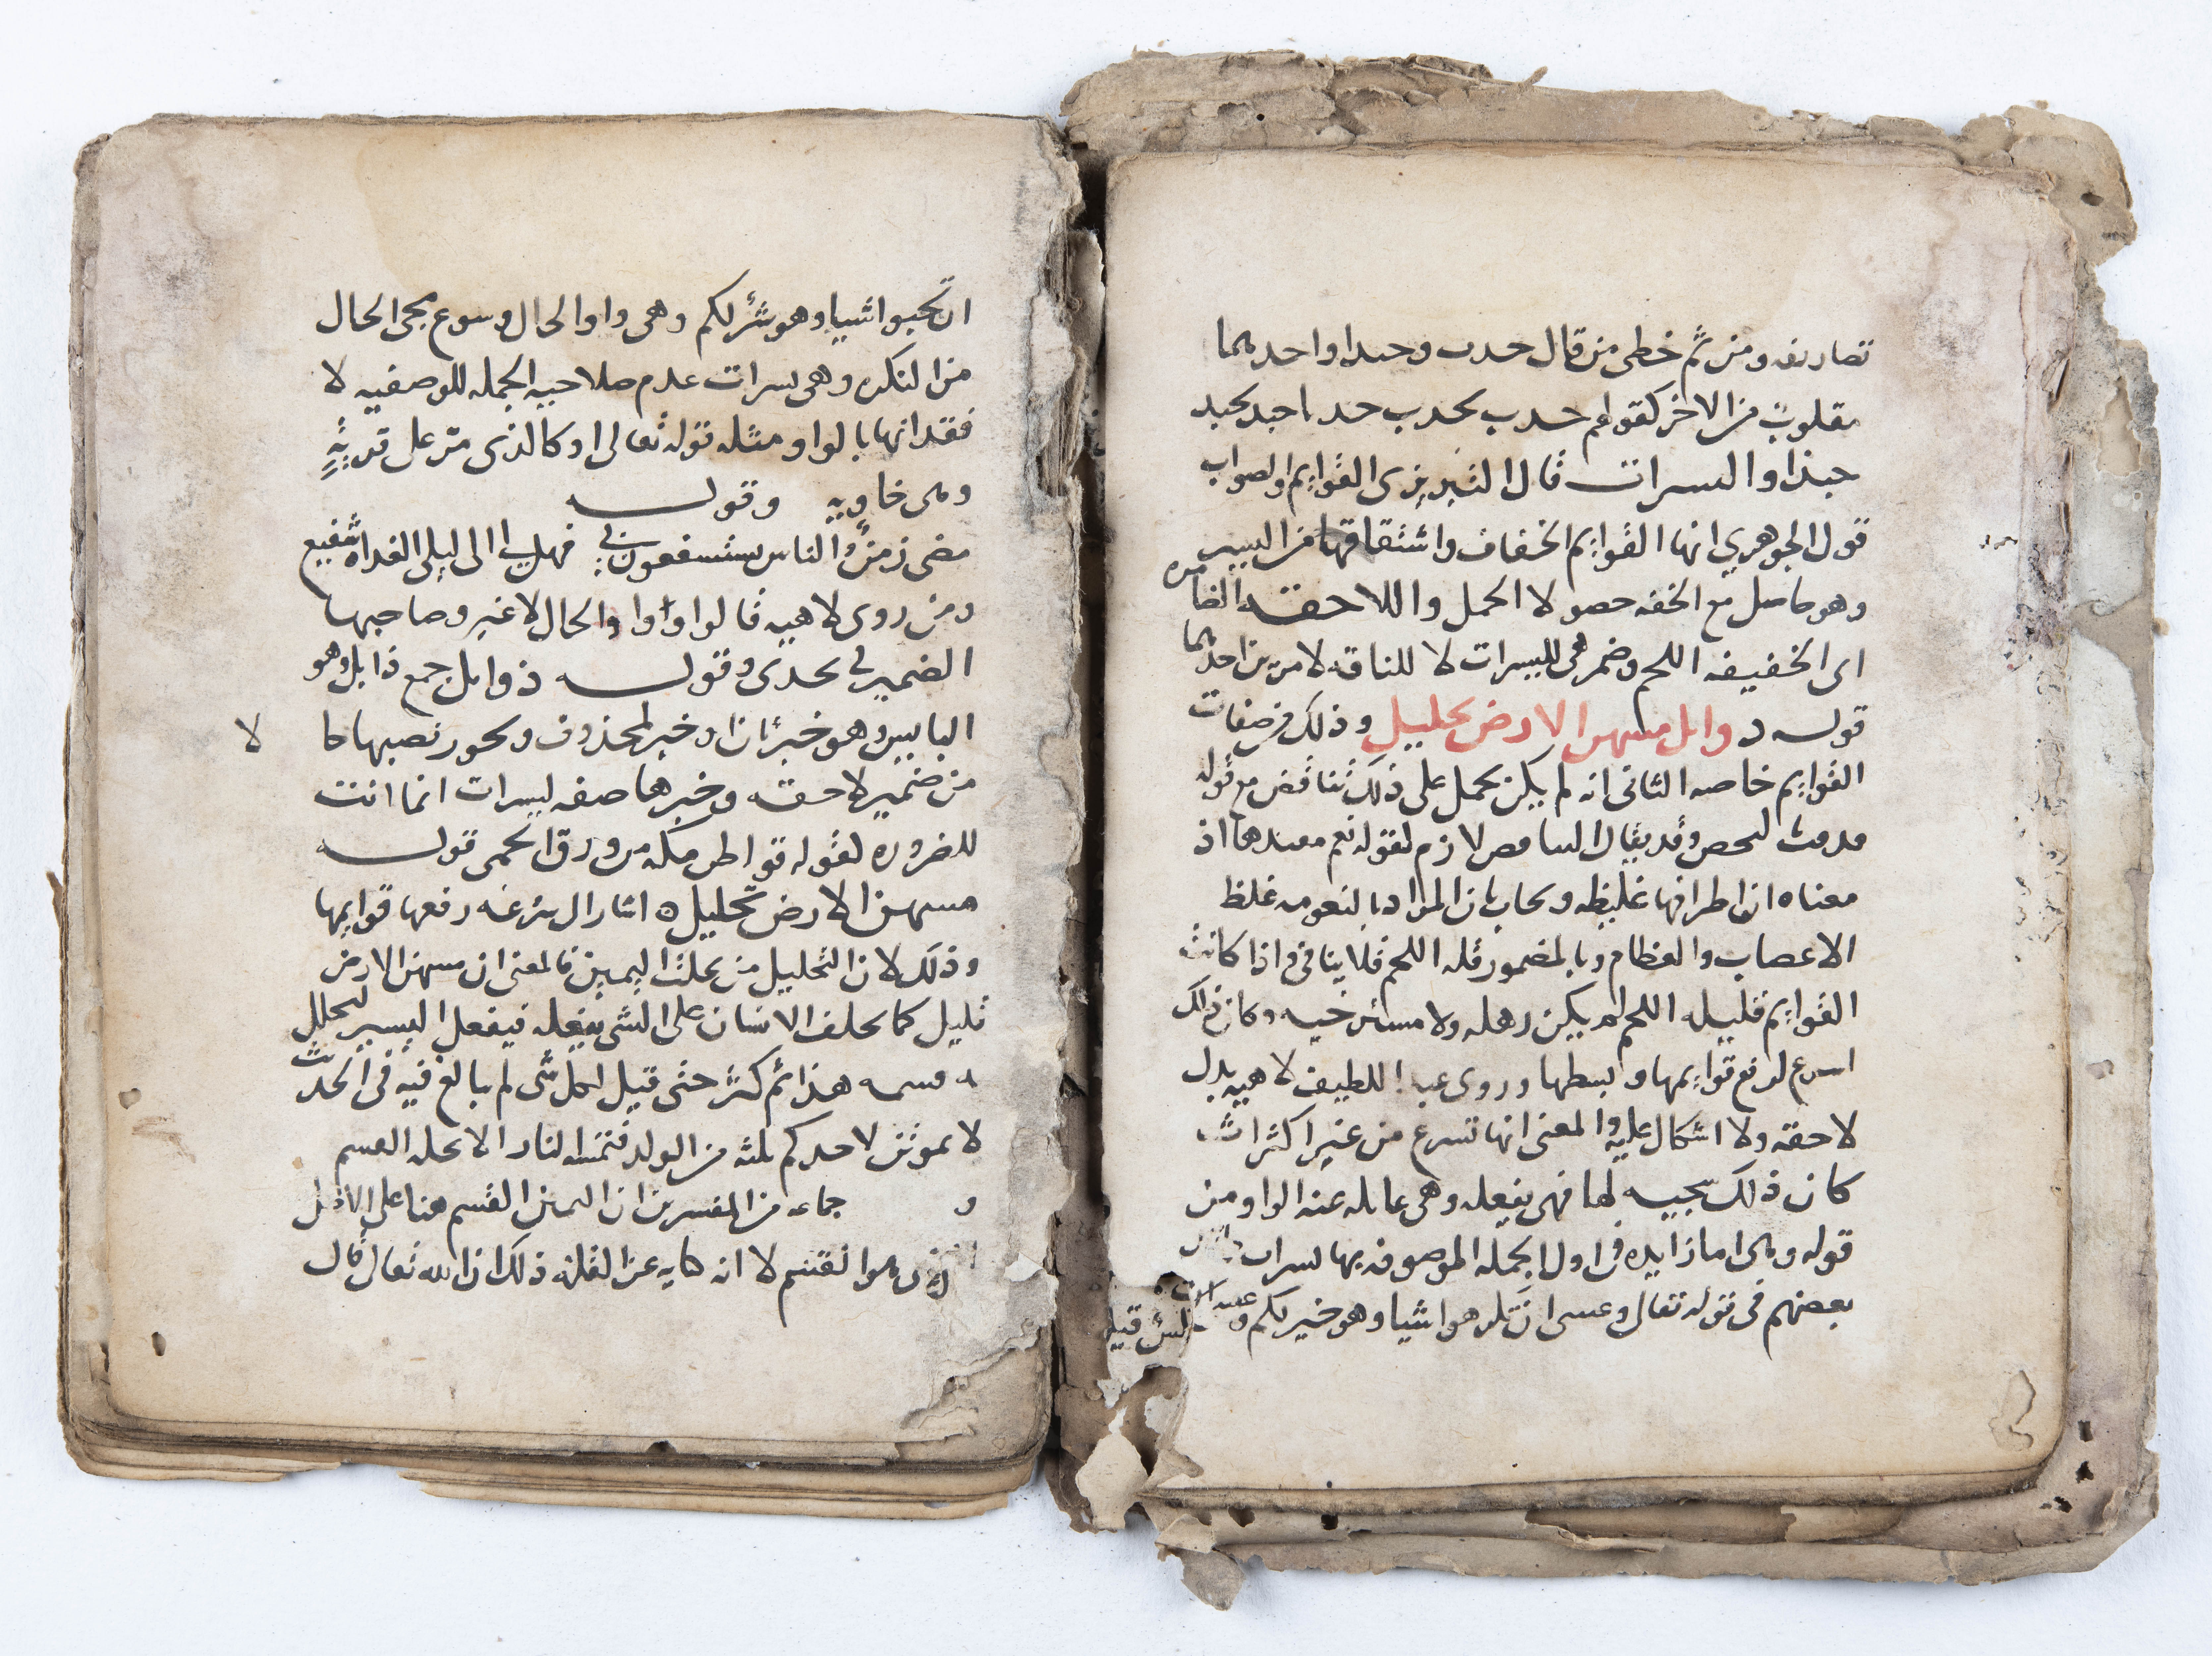 تصاريفه ومن ثم خطى من قال حدب وحبدا واحدهما
مقلوب من الاخر كقولهم حدب بحدب حدبا حبد يحبد
حبذا واليسرات قال التبريزى القوايم والصواب
قول الجوهري انها القوايم الخفاف واشتقاقها من اليسر
وهو حاصل مع الخفه حصولا اكمل واللاحقه الضامره
اى الخفيفه اللحم وضمير هى لليسرات لا للناقه لامرين احدهما
قوله ذوابل مسهن الارض تحليل وذلك من صفات
القوايم خاصه الثانى انه لم يكن يحمل على ذلك تناقض مع قوله
قدفت لنحص وقد يقال التناقض لازم لقوله فعم مقيدها اذ
معناه ان اطرافها غليظه ويجاب بان المراد بالفعومه غلظ
الاعصاب والعظام وبالضمور قله اللحم فلا ينافى اذا كانت
القوايم قليله اللحم لم يكن رهله ولا مسترخيه وكان ذلك
اسرع لرفع قوايمها وبسطها وروى عبد اللطيف لاهيه بدل
لاحقه ولا اشكال عليه والمعنى انها تسرع من غير اكتراث
كان ذلك سجيه لها فهى يفعله وهى غافله عنه الواو من
قوله وهى اما زايده فى اول الجمله الموصوف بها يسرات
بعضهم فى قوله تعالى وعسى ان تكرهوا شيا وهو خير لكم وعسى
ان تحبوا شيا وهو شر لكم وهى واو الحال وسوغ مجى الحال
من النكره وهى يسرات عدم صلاحيه الجمله للوصفيه لا
فقدانها بالواو ومثله قوله تعالى او كالذى مر على قرية
وهى خاويه وقوله
مضى زمن والناس يستشفعون بي فهل لى الى ليلى الغداه شفيع
ومن روى لاهيه قالوا واو الحال لا غير وصاحبها
الضمير فى يخدى وقوله ذوابل جمع ذابل وهو
اليابس وهو خبر ثان او خبر لمحذوف ويجوز نصبها حا لا
من ضمير لاحقه وخبرها صفه ليسرات انما انتت
للضروره لقوله قواطن مكه من ورق الحمى قوله
مسهن الارض تحليل ه اشار الى سرعه رفعها قوايمها
وذلك لان التحليل من تحلة اليمين فالمعنى ان مسهن الارض
قليل كما يحلف الانسان على الشى يفعله فيفعل اليسير ليحلل
به قسمه هذا ثم كثر حتى قيل لكل شى لم يبالغ فيه فى الحديث
لا يموتن لاحدكم ثلثه من الولد فتمسه النار الا تحله القسم
و جماعه من المفسرين ان اليمين القسم هنا على الاصل
لا انه كنايه عن القله ذلك ان الله تعالى قال